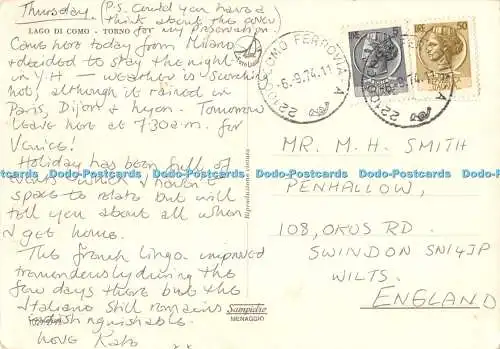 Thursday. (P.S. Could you have a
think about the cover
for my presentation
LAGO DI COMO - TORNO
Came here today from Milano
+ decided to stay the night
in YH — weather is scorching
hot, although it rained in
Paris, Dijon & Lyon. Tomorrow
leave here at 7.30am. for
Venice!
Holiday has been full of
which I haven't
space to relate but will
tell you about all when
I get home.
The French lingo improved
tremendously during the
few days there but the
Italiano still remains
indistinguishable.
Love Kate
xx
Riproduzione vietata
Sampietro
MENAGGIO
22100 COMO FERROVIA
-6.-9.74.11
LIRE 5
LIRE 50
ITALIA
MR. M. H. SMITH
PENHALLOW,
108, OKUS RD.
SWINDON SN1 4JP
WILTS.
ENGLAND
Dodo-Postcards Dodo-Postcards Dodo-Postcards Dodo-Postcards Dodo-Postcards Dodo-Postcards